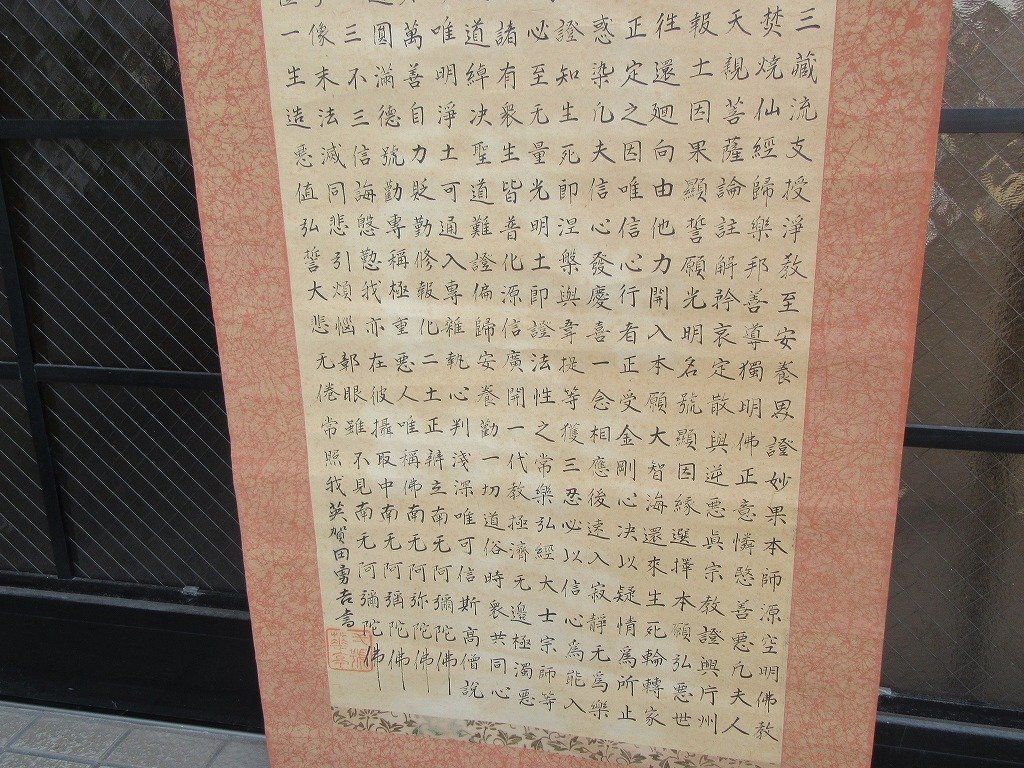 三藏流支授淨教至安養界證妙果本師源空明佛教
焚燒仙經歸樂邦善導獨明佛正意憐愍善惡凡夫人
天親菩薩論註解矜哀定散與逆惡真宗教證興片州
報土因果顯誓願光明名號顯因緣選擇本願弘惡世
往還廻向由他力開入本願大智海還來生死輪轉家
正定之因唯信心行者正受金剛心決以疑情為所止
惑染凡夫信心發慶喜一念相應後速入寂靜无為樂
證知生死即涅槃與韋提等獲三忍必以信心為能入
必至无量光明土即證法性之常樂弘經大士宗師等
諸有衆生皆普化源信廣開一代教拯濟无邊極濁惡
道綽決聖道難證偏歸安養勸一切道俗時衆共同心
唯明淨土可通入專雜執心判淺深唯可信斯高僧說
萬善自力貶勤修報化二土正辨立南无阿彌陀佛
圓滿德號勸專稱極重惡人唯稱佛南无阿弥陀佛
三不三信誨慇懃我亦在彼攝取中南无阿彌陀佛
像末法滅同悲引煩惱鄣眼雖不見南无阿彌陀佛
一生造惡值弘誓大悲无倦常照我英賀田勇吉書